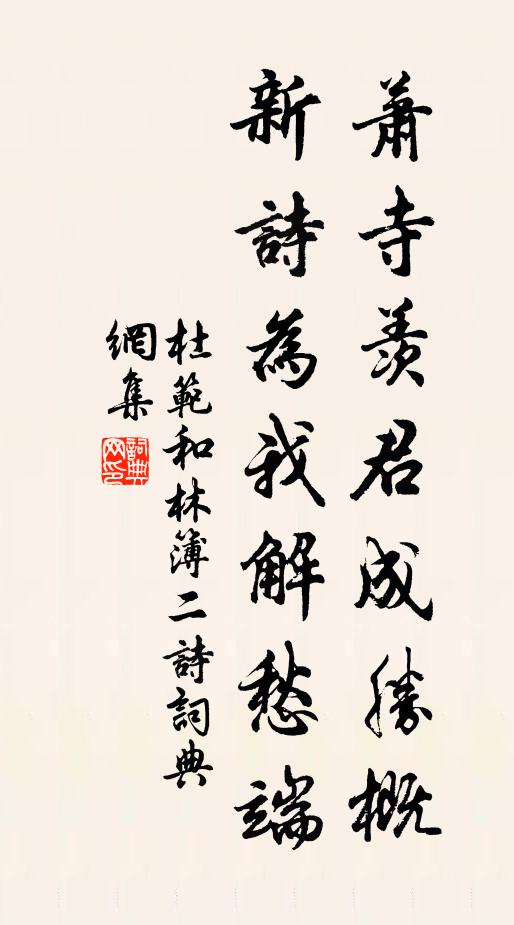 蕭寺羨君成勝概
新詩為我解愁端
杜範和林簿二詩詞典
網集
詞典網印